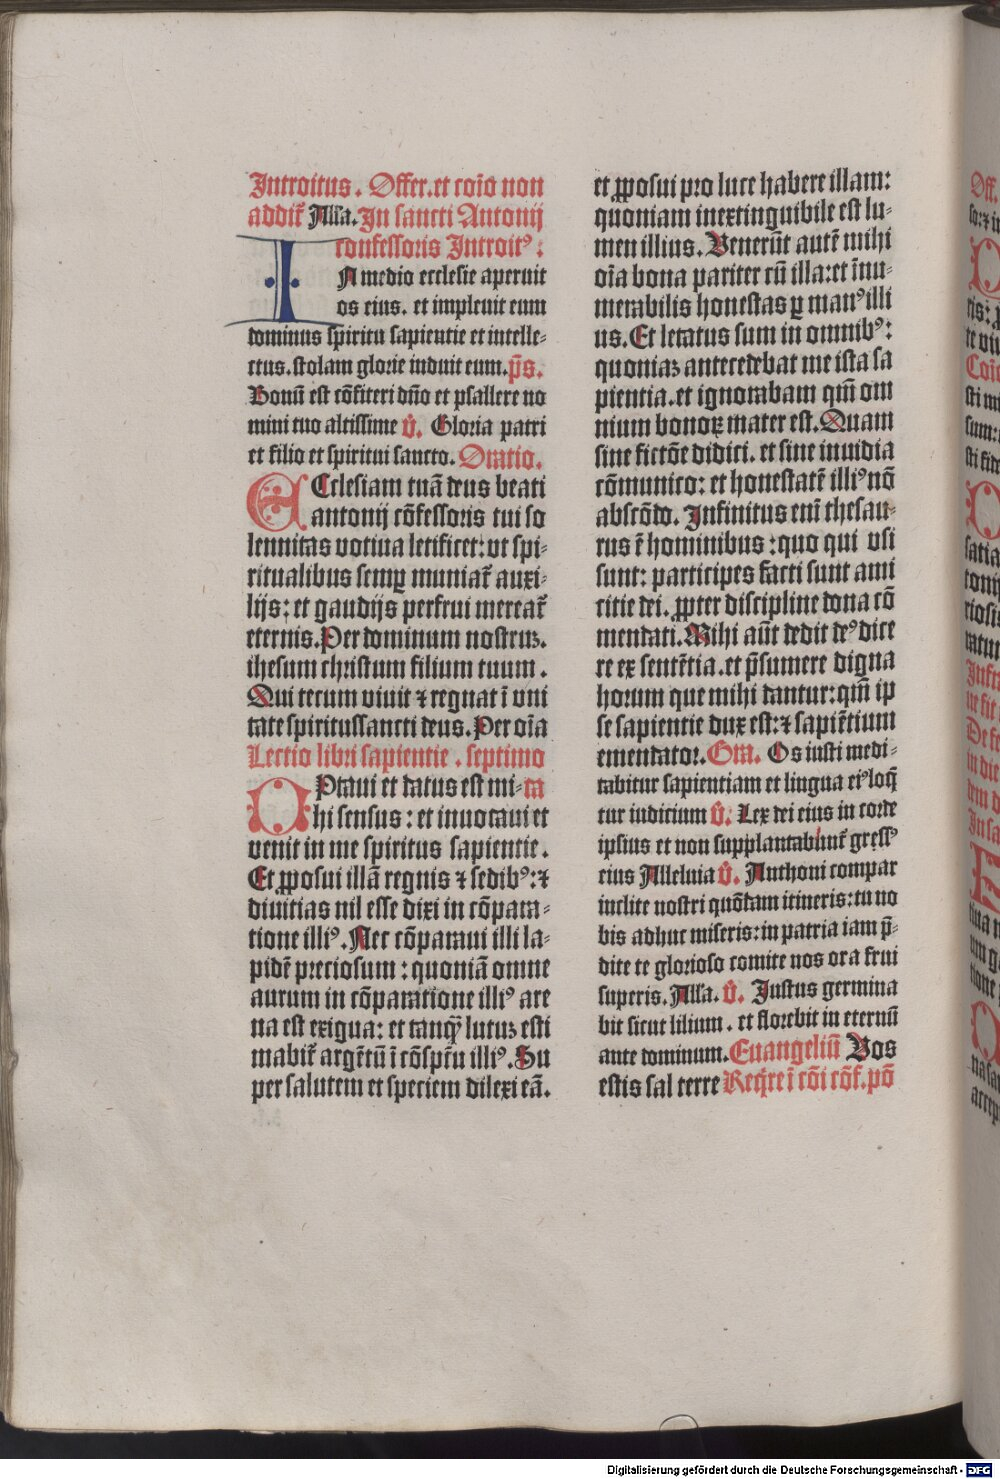 Introitus. Offer. et cōio non
addit᷑ Alľa. In sancti Antonij
confessoris Introitꝰ:
IN medio ecclesie aperuit
os eius. et impleuit eum
dominus spiritu sapientie et intelle-
ctus. stolam glorie induit eum. p̄s.
Bonū est cōfiteri dño et psallere no
mini tuo altissime v̄. Gloria patri
et filio et spiritui sancto. Oratio.
ECclesiam tuā deus beati
antonij cōfessoris tui so
lennitas votiua letificet: vt spi-
ritualibus semꝑ muniat᷑ auxi-
lijs: et gaudijs perfrui mereat᷑
eternis. Per dominum nostruꝫ.
ihesum christum filium tuum.
Qui tecum viuit ⁊ regnat ī vni
tate spiritussancti deus. Per oīa
Lectio libri sapientie. septimo
OPtaui et datus est mi-ca
hi sensus: et inuocaui et
venit in me spiritus sapientie.
Et ꝓposui illā regnis ⁊ sedibꝰ: ⁊
diuitias nil esse dixi in cōpara-
tione illiꝰ. Nec cōparaui illi la-
pidē preciosum: quoniā omne
aurum in cōparatione illiꝰ are
na est exigua: et tanqͣ̄ lutuꝫ esti
mabit᷑ argētū ī cōspc̄u illiꝰ. Su
per salutem et speciem dilexi eā.
et ꝓposui pro luce habere illam:
quoniam inextinguibile est lu-
men illius. Venerūt autē mihi
oīa bona pariter cū illa: et īnu-
merabilis honestas ꝑ manꝰ illi
us. Et letatus sum in omnibꝰ:
quoniaꝫ antecedebat me ista sa
pientia. et ignorabam qm̄ om
nium bonoꝝ mater est. Quam
sine fictōe didici. et sine inuidia
cōmunico: et honestatē illiꝰ nō
abscōdo. Infinitus em̄ thesau-
rus ē hominibus: quo qui vsi
sunt: participes facti sunt ami
citie dei. ꝓpter discipline dona cō
mendati. Mihi aūt dedit deꝰ dice
re ex sentētia. et p̄sumere digna
horum que mihi dantur: qm̄ ip
se sapientie dux est: ⁊ sapiētium
emendator. Gra. Os iusti medi-
tabitur sapientiam et lingua eiꝰ loq̄
tur iudicium v̄. Lex dei eius in corde
ipsius et non supplantabūnt᷑ gressꝰ
eius Alleluia v̄. Anthoni compar
inclite nostri quōdam itineris: tu no
bis adhuc miseris: in patria iam p̄-
dite te glorioso comite nos ora frui
superis. Alľa. v̄. Iustus germina
bit sicut lilium. et florebit in eternū
ante dominum. Euangeliū Vos
estis sal terre Req̄re ī cōi cōf. pō
Digitalisierung gefördert durch die Deutsche Forschungsgemeinschaft - DFG